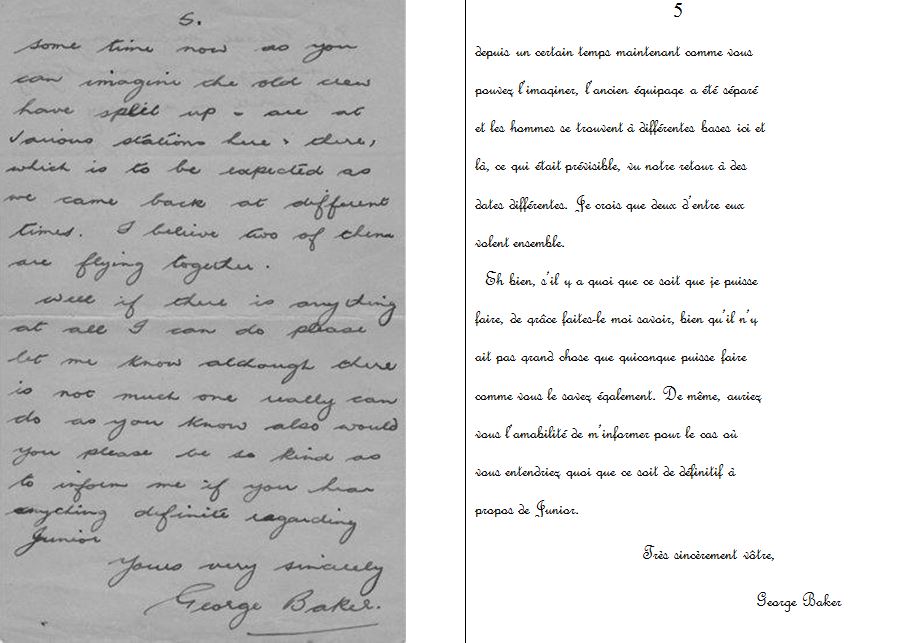 5.
some time now as you
can imagine the old crew
have split up - are at
various stations here & there,
which is to be expected as
we came back at different
times. I believe two of them
are flying together.
Well if there is anything
at all I can do please
let me know although there
is not much one really can
do as you know also would
you please be so kind as
to inform me if you hear
anything definite regarding
Junior
Yours very sincerely
George Baker.
5
depuis un certain temps maintenant comme vous
pouvez l'imaginer, l'ancien équipage a été séparé
et les hommes se trouvent à différentes bases ici et
là, ce qui était prévisible, vu notre retour à des
dates différentes. Je crois que deux d'entre eux
volent ensemble.
Eh bien, s'il y a quoi que ce soit que je puisse
faire, de grâce faites-le moi savoir, bien qu'il n'y
ait pas grand chose que quiconque puisse faire
comme vous le savez également. De même, auriez
vous l'amabilité de m'informer pour le cas où
vous entendriez quoi que ce soit de définitif à
propos de Junior.
Très sincèrement vôtre,
George Baker